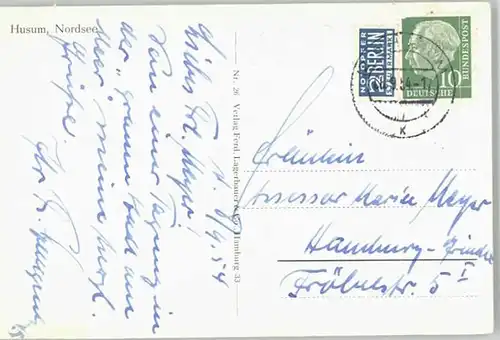 Husum, Nordsee
H. 8/9.54
Liebes Frl. Meyer!
Von einer Tagung in
der "grauen Stadt am
Meer" meine herzl.
Grüße.
Ihr
Nr. 26 Verlag Ferd. Lagerbauer Hamburg 33
NOTOPFER
2 BERLIN
STEUERMARKE
DEUTSCHE
BUNDESPOST
10
Fräulein
Professor Maria Meyer
Hamburg-
Fröbelstr. 5 I